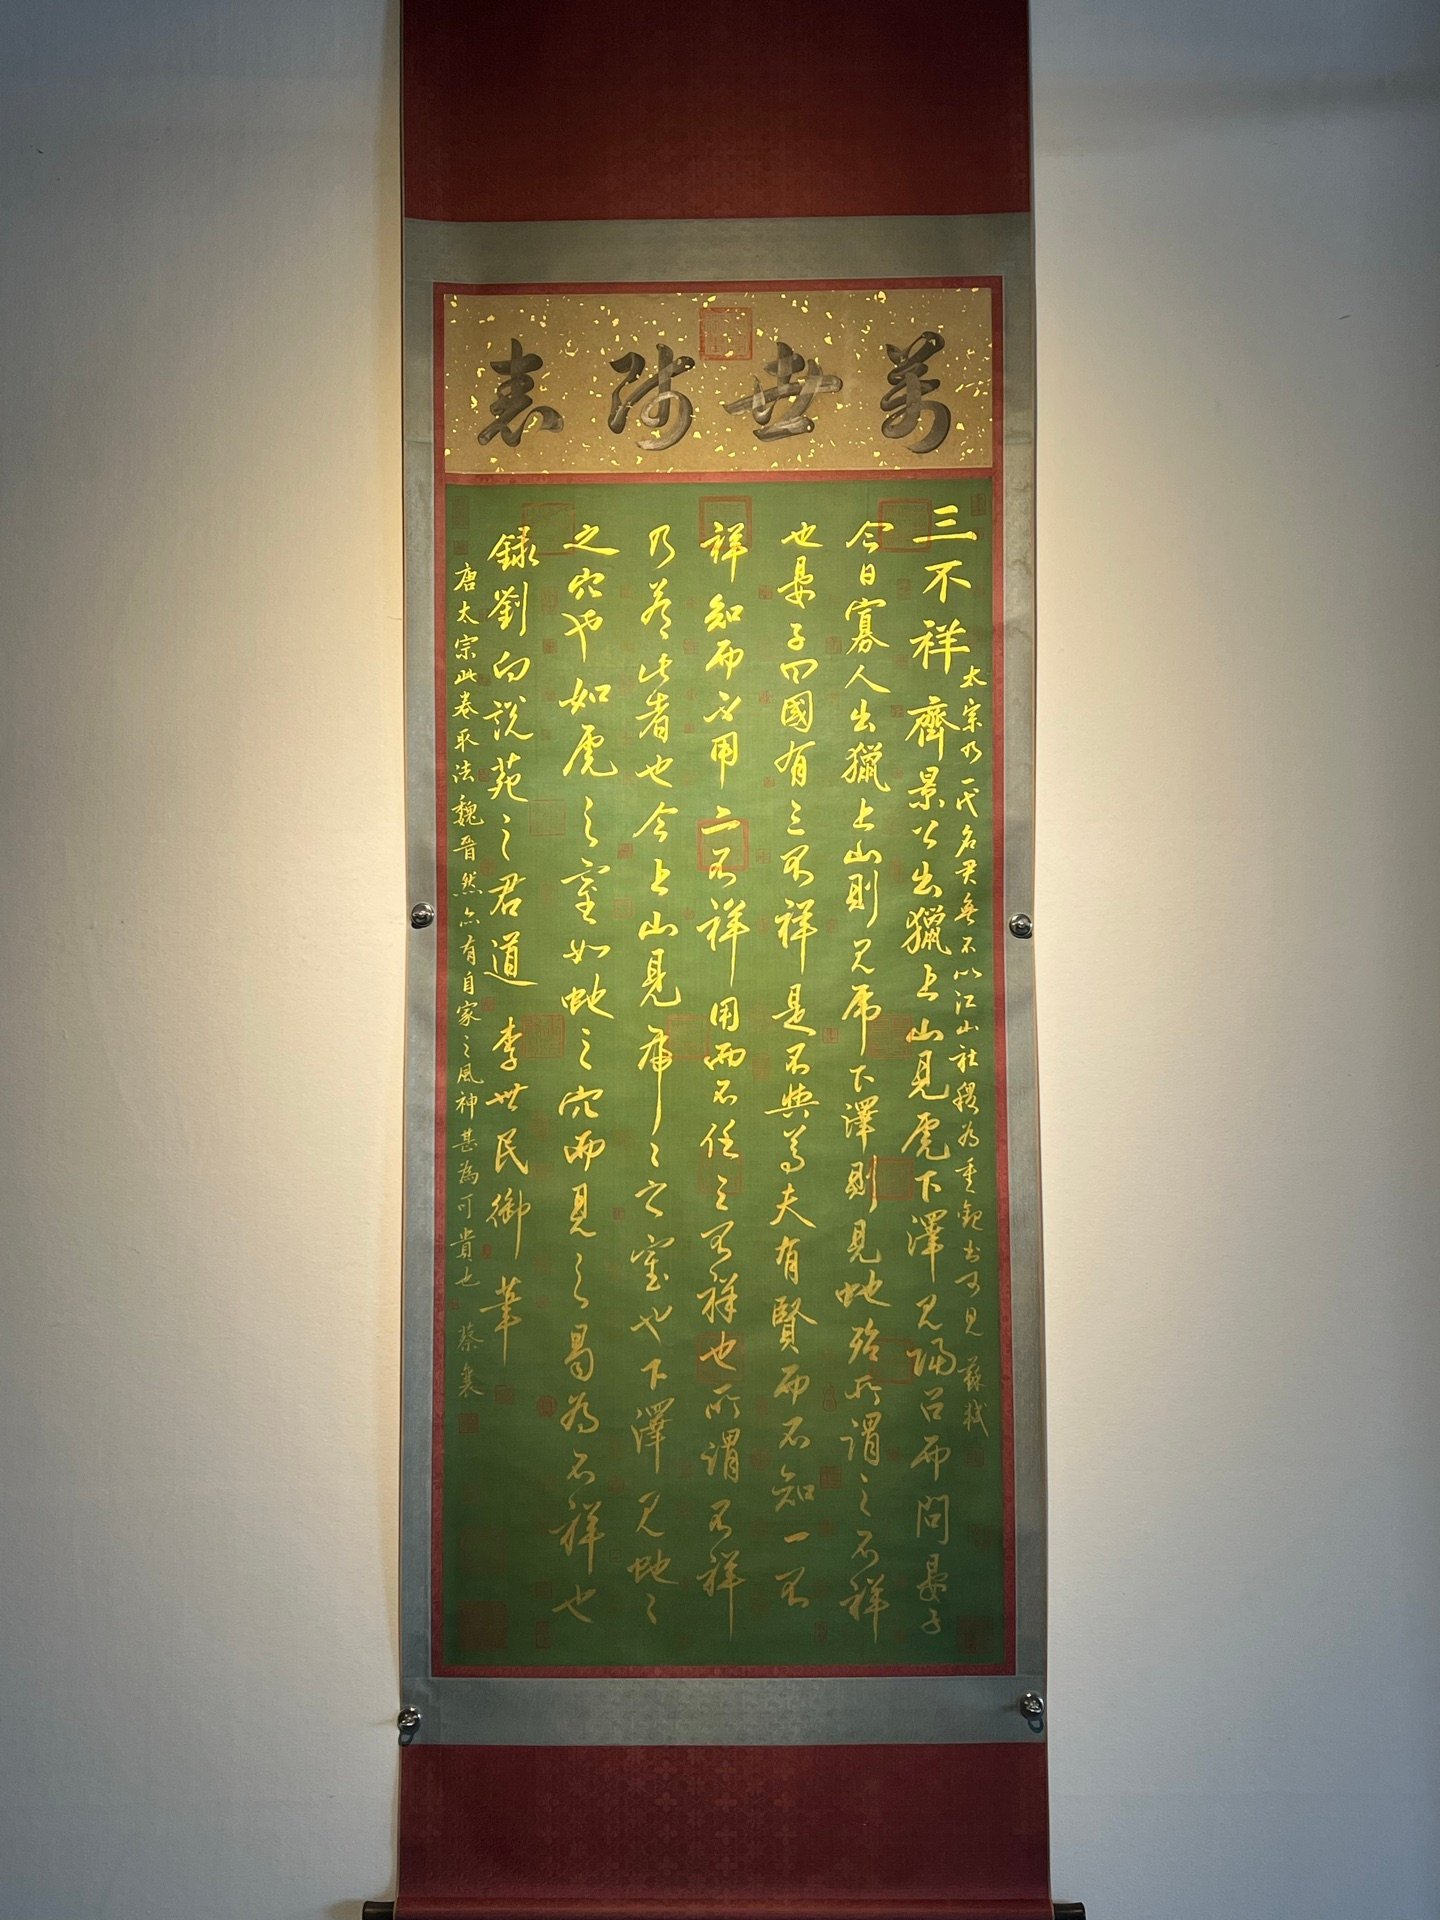 萬世師表
太宗乃一代名君無不以江山社稷為重觀書可見蘇軾
三不祥齊景公出獵上山見虎下澤見蛇召而問晏子
今日寡人出獵上山則見虎下澤則見蛇殆所謂之不祥
也晏子曰國有三不祥是不與焉夫有賢而不知一不
祥知而不用二不祥用而不任三不祥也所謂不祥
乃若此者也今上山見虎虎之室也下澤見蛇蛇
之穴也如虎之室如蛇之穴而見之曷為不祥也
錄劉向說苑之君道 李世民御筆
唐太宗此卷取法魏晉然亦有自家之風神甚為可貴也 蔡襄